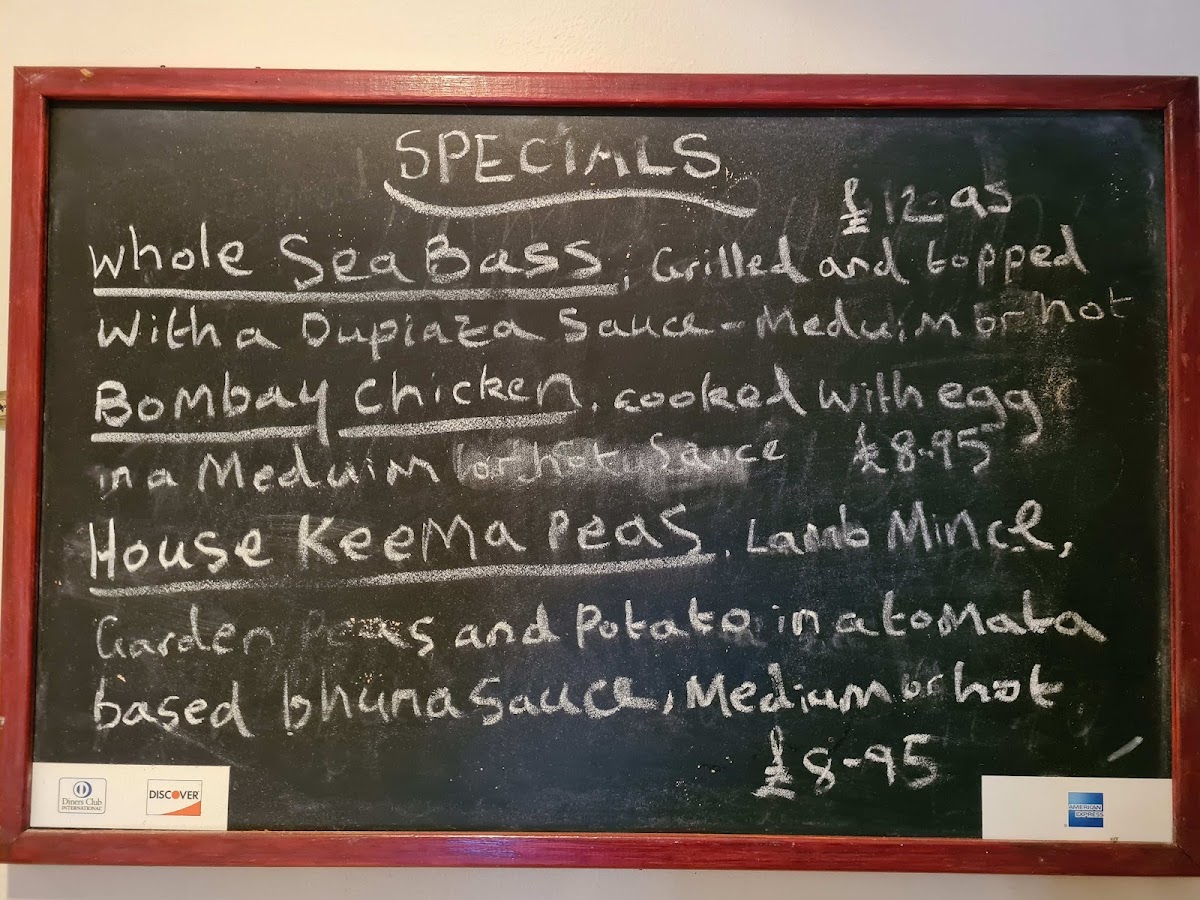 SPECIALS
£12-95
Whole Sea Bass, Grilled and topped
With a Dupiaza Sauce - Meduim or hot
Bombay Chicken, cooked with egg
in a Meduim or hot Sauce £8-95
House Keema Peas, Lamb Mince,
Garden Peas and Potato in a tomata
based bhuna Sauce, Medium or hot
£8-95
Diners Club
INTERNATIONAL
DISCOVER
AMERICAN
EXPRESS